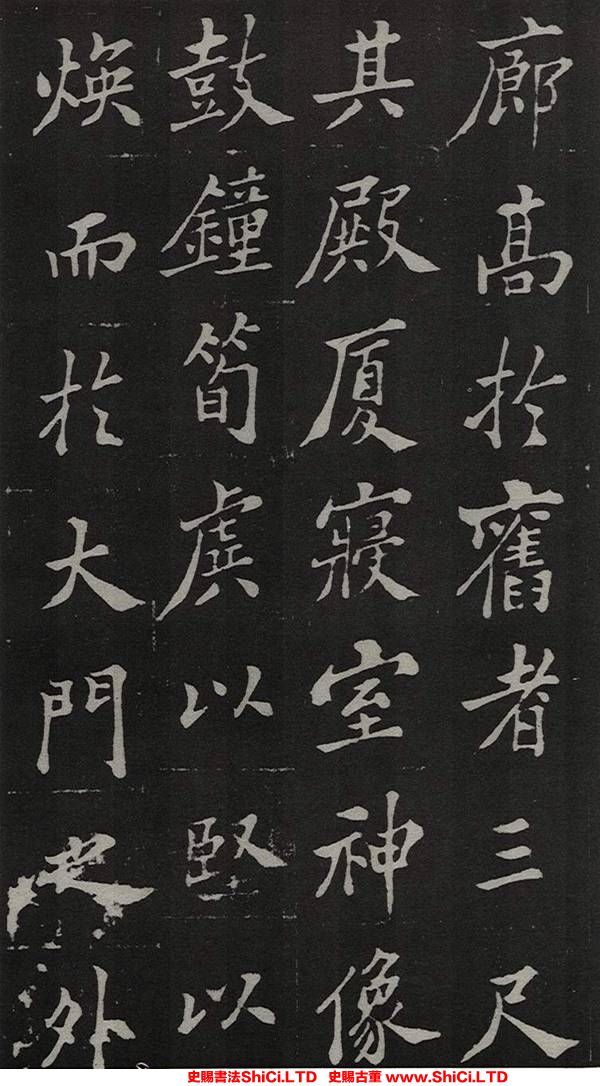 廊高於舊者三尺
其殿厦寢室神像
鼓鐘筍虡以堅以
焕而於大門之外
史賜書法ShiCi.LTD 史賜古董 www.ShiCi.LTD